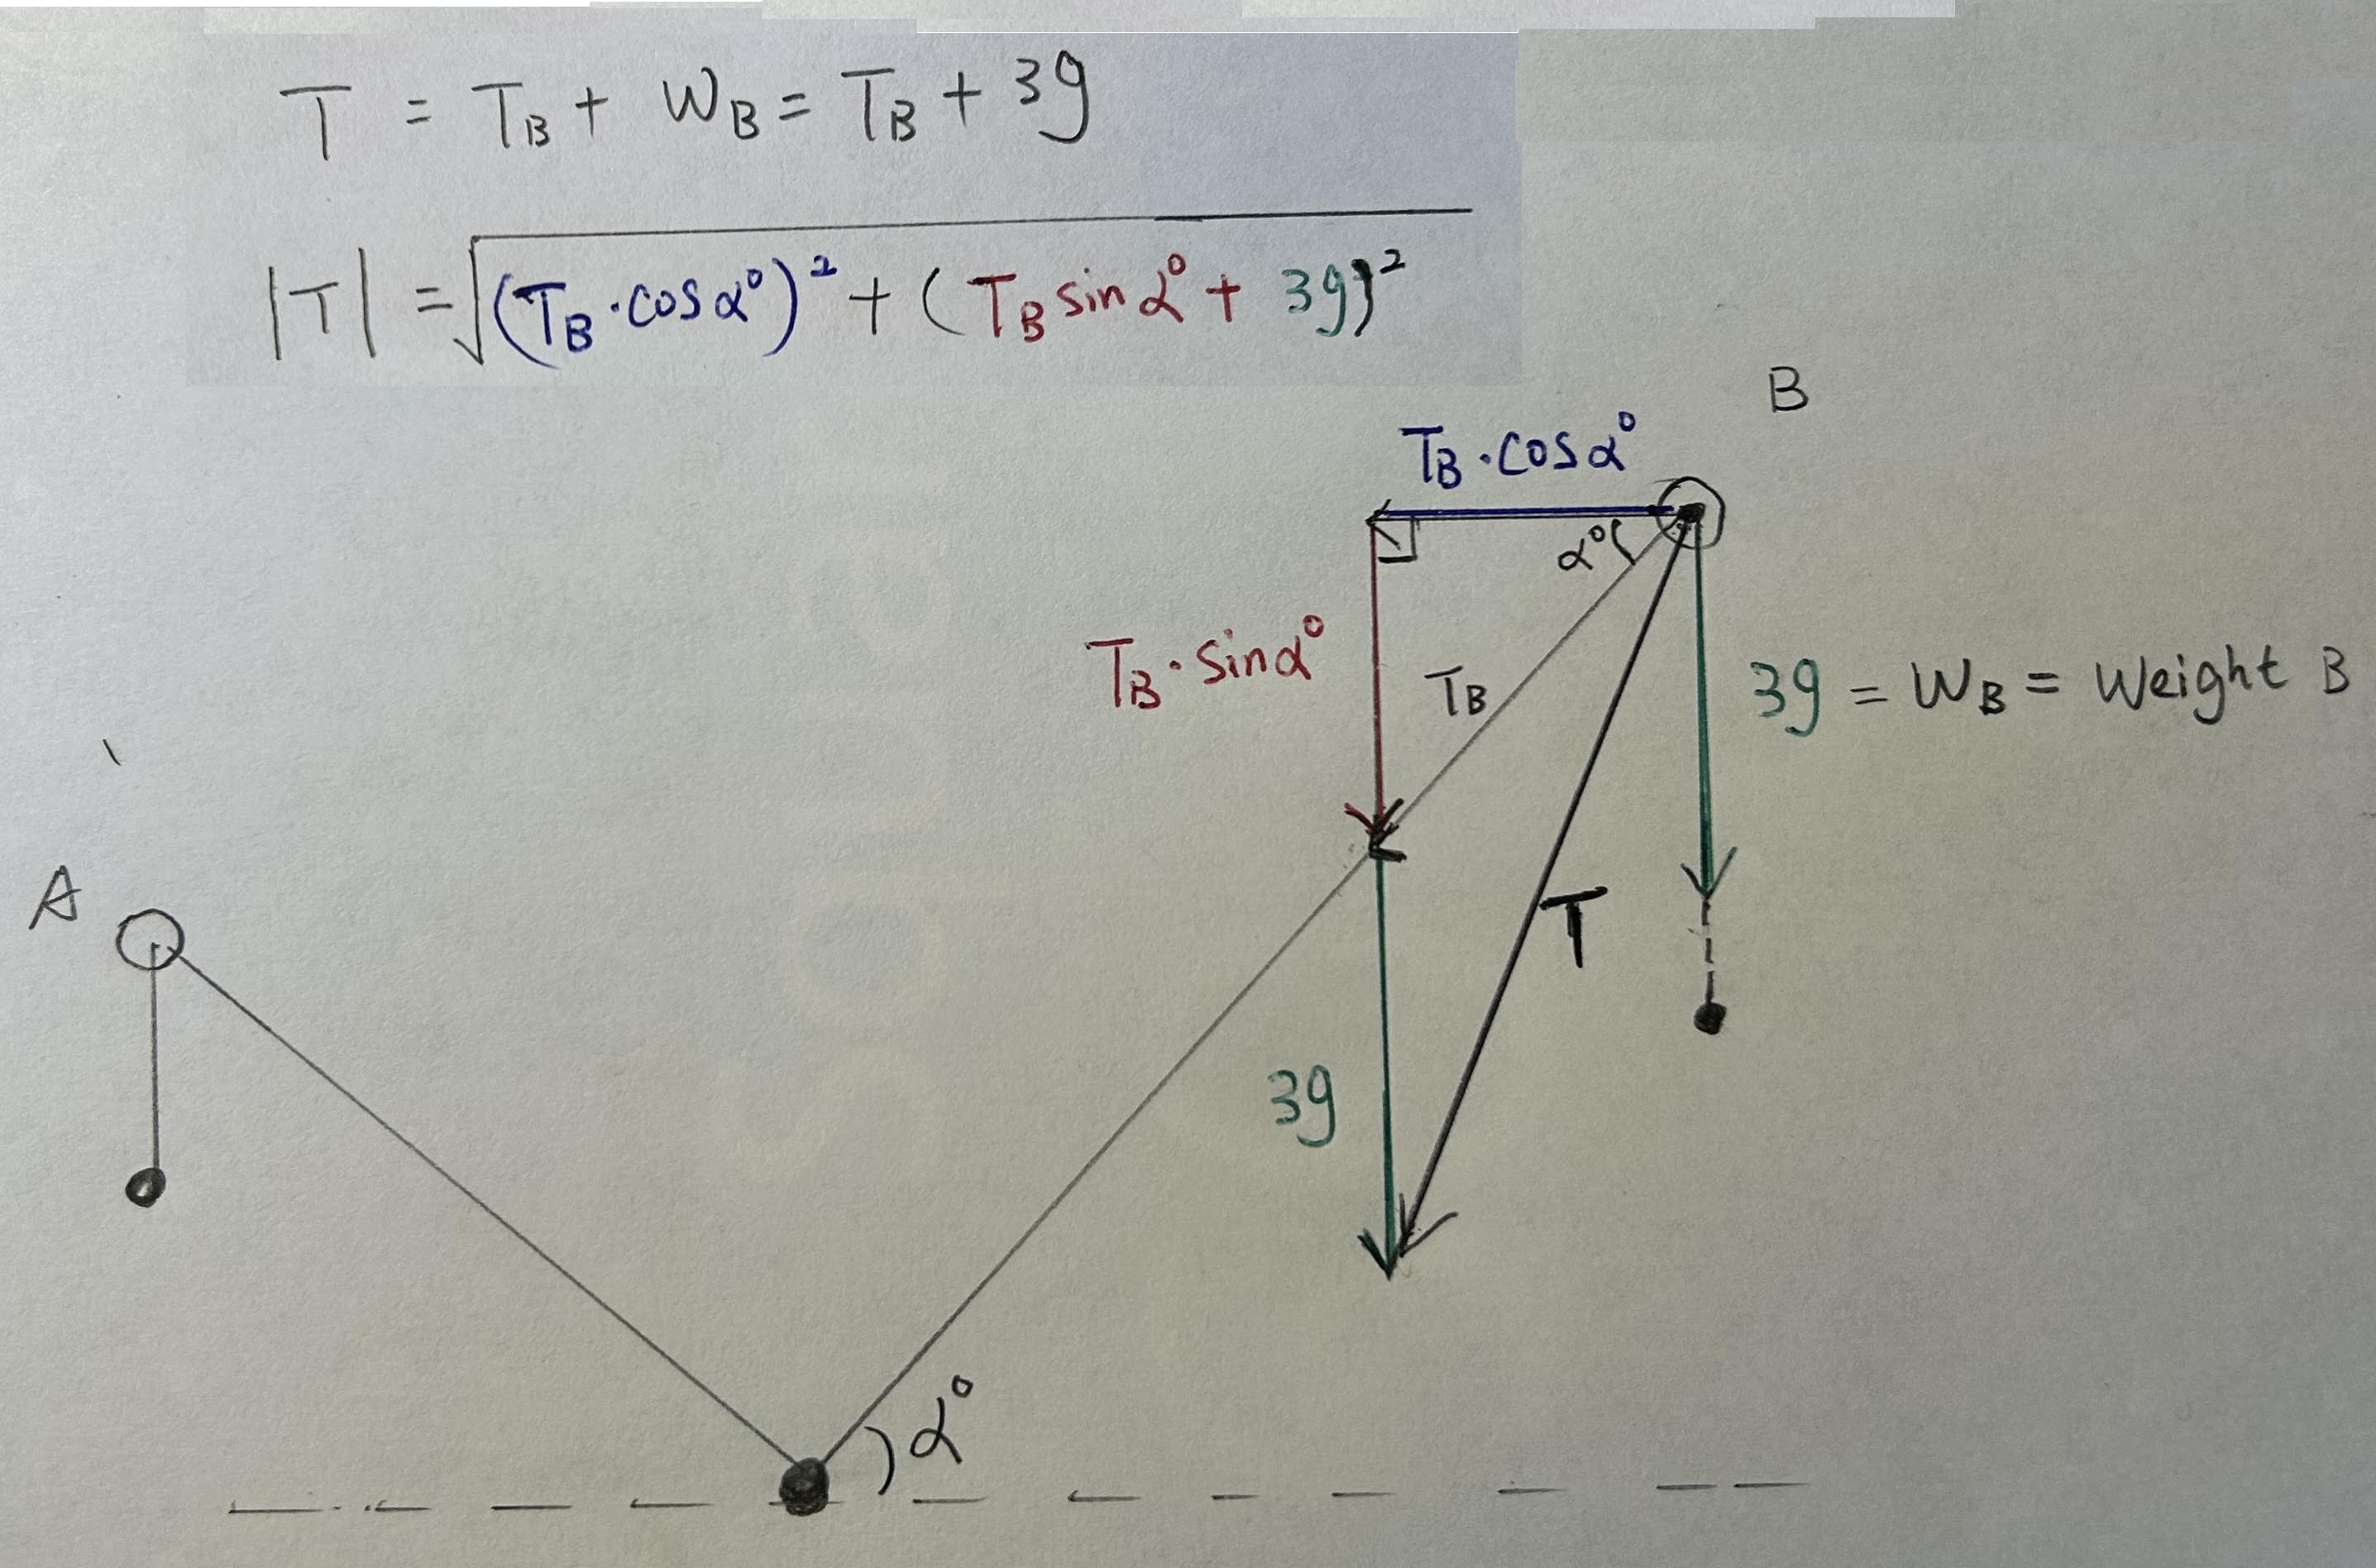 T = T_B + W_B = T_B + 3g
|T| = √((T_B·cosα°)² + (T_B sinα° + 3g)²)
B
T_B·cosα°
α°
T_B·sinα°
T_B
3g = W_B = Weight B
A
T
3g
α°